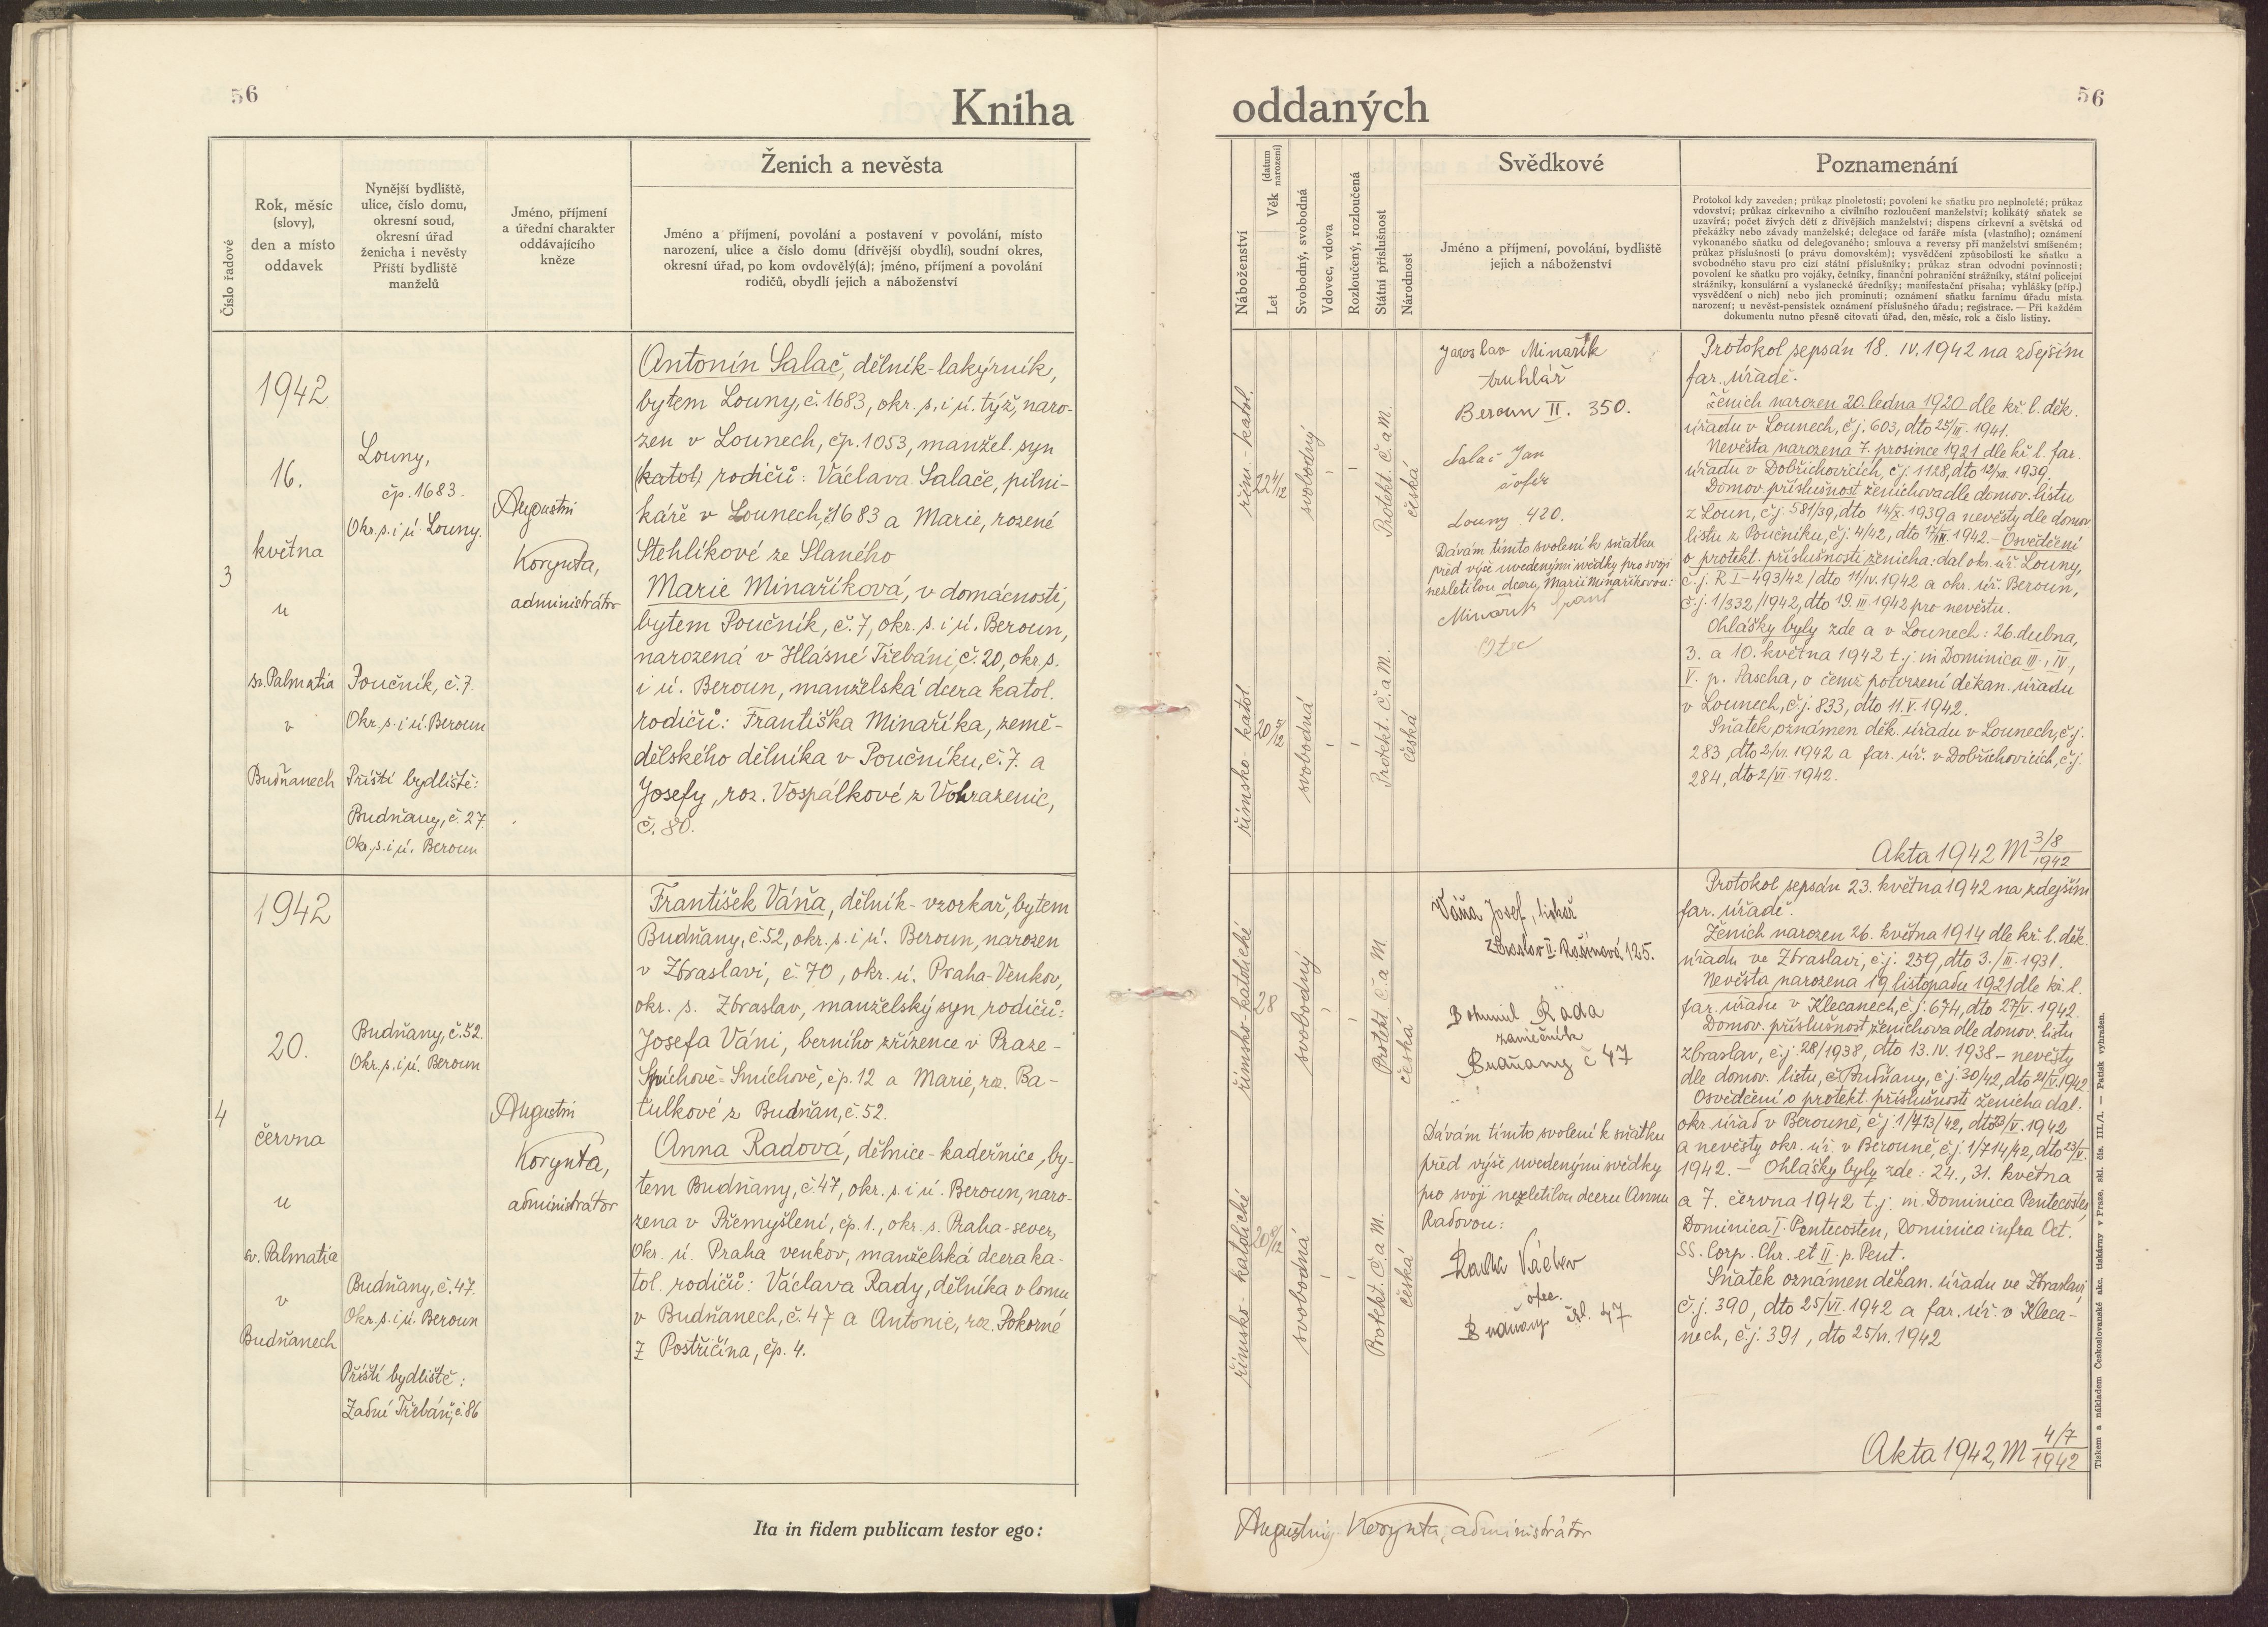 56
Kniha
Číslo řadové
Rok, měsíc
(slovy),
den a místo
oddavek
Nynější bydliště,
ulice, číslo domu,
okresní soud,
okresní úřad
ženicha i nevěsty
Příští bydliště
manželů
Jméno, příjmení
a úřední charakter
oddávajícího
kněze
Ženich a nevěsta
Jméno a příjmení, povolání a postavení v povolání, místo
narození, ulice a číslo domu (dřívější obydlí), soudní okres,
okresní úřad, po kom ovdovělý(á); jméno, příjmení a povolání
rodičů, obydlí jejich a náboženství
3
1942
16.
května
u
sv. Palmatia
v
Budňanech
Louny,
čp. 1683.
Okr. s. i ú Louny.
Poučník, č. 7.
Okr. s. i ú. Beroun
Příští bydliště:
Budňany, č. 27.
Okr. s. i ú. Beroun
Augustin
Korynta,
administrátor
Antonín Salač, dělník-lakýrník,
bytem Louny, č. 1683, okr. s. i ú. týž, naro-
zen v Lounech, čp. 1053, manžel. syn
(katol) rodičů: Václava Salače, pilni-
káře v Lounech, č 1683 a Marie, rozené
Stehlíkové ze Slaného
Marie Minaříková, v domácnosti,
bytem Poučník, č. 7, okr. s. i ú. Beroun,
narozená v Hlásné Třebáni, č. 20, okr. s.
i ú. Beroun, manželská dcera katol.
rodičů: Františka Minaříka, země-
dělského dělníka v Poučníku, č. 7. a
Josefy, roz. Vospálkové z Vohrazenic,
č. 80.
4
1942
20.
června
u
sv. Palmatia
v
Budňanech
Budňany, č. 52.
Okr. s. i ú. Beroun
Budňany, č. 47.
Okr. s. i ú. Beroun
Příští bydliště:
Zadní Třebáň, č. 86
Augustin
Korynta,
administrátor
František Váňa, dělník-vzorkař, bytem
Budňany, č. 52, okr. s. i ú. Beroun, narozen
v Zbraslavi, č. 70, okr. ú. Praha-Venkov,
okr. s. Zbraslav, manželský syn rodičů:
Josefa Váni, berního zřízence v Praze-
Smíchově, čp. 12 a Marie, roz. Ba-
tulkové z Budňan, č. 52.
Anna Radová, dělnice-kadeřnice, by-
tem Budňany, č. 47, okr. s. i ú. Beroun, naro-
zena v Přemyšlení, čp. 1., okr. s. Praha-sever,
Okr. ú. Praha venkov, manželská dcera ka-
tol. rodičů: Václava Rady, dělníka v lomu
v Budňanech, č. 47 a Antonie, roz. Pokorné
z Postřižína, čp. 4.
Ita in fidem publicam testor ego:
oddaných
56
Náboženství
Věk (datum narození)
Let
Svobodný, svobodná
Vdovec, vdova
Rozloučený, rozloučená
Státní příslušnost
Národnost
Svědkové
Jméno a příjmení, povolání, bydliště
jejich a náboženství
Poznamenání
Protokol kdy zaveden; průkaz plnoletosti; povolení ke sňatku pro neplnoleté; průkaz
vdovství; průkaz církevního a civilního rozloučení manželství; kolikátý sňatek se
uzavírá; počet živých dětí z dřívějších manželství; dispens církevní a světská od
překážky nebo závady manželské; delegace od faráře místa (vlastního); oznámení
vykonaného sňatku od delegovaného; smlouva a reversy při manželství smíšeném;
průkaz příslušnosti (o právu domovském); vysvědčení způsobilosti ke sňatku a
svobodného stavu pro cizí státní příslušníky; průkaz stran odvodní povinnosti;
povolení ke sňatku pro vojáky, četníky, finanční pohraniční strážníky, státní policejní
strážníky, konsulární a vyslanecké úředníky; manifestační přísaha; vyhlášky (příp.)
vysvědčení o nich) nebo jich prominutí; oznámení sňatku farnímu úřadu místa
narození; u nevěst-pensistek oznámení příslušného úřadu; registrace. — Při každém
dokumentu nutno přesně citovati úřad, den, měsíc, rok a číslo listiny.
řím.-katol.
22 4/12
svobodný
Protekt. Č. a M.
česká
římsko-katol.
20 5/12
svobodná
Protekt. Č. a M.
česká
Jaroslav Minařík
truhlář
Beroun II. 350.
Salač Jan
šofér
Louny 420.
Dávám tímto svolení k sňatku
před výše uvedenými svědky pro svoji
nezletilou dceru, Marii Minaříkovou:
Minařík Frant
Otec
Protokol sepsán 18. IV. 1942 na zdejším
far. úřadě.
Ženich narozen 20. ledna 1920 dle kř. l. děk.
úřadu v Lounech, č.j. 603, dto 25/III. 1941.
Nevěsta narozená 7. prosince 1921 dle kř l. far.
úřadu v Dobřichovicích, č.j. 1128, dto 12/XII. 1939.
Domov. příslušnost ženichova dle domov. listu
z Loun, č.j. 581/39, dto 14/X. 1939 a nevěsty dle domov
listu z Poučníku, č.j. 4/42, dto 17/III. 1942. - Osvědčení
o protekt. příslušnosti ženicha: dal okr. úř. Louny,
č.j. R I-493/42/dto 11/IV. 1942 a okr. úř. Beroun,
č.j. 1/332/1942, dto 19. III. 1942 pro nevěstu.
Ohlášky byly zde a v Lounech: 26. dubna,
3. a 10. května 1942 t. j. in Dominica III., IV.,
V. p. Pascha, o čemž potvrzení děkan. úřadu
v Lounech, č.j. 833, dto 11. V. 1942.
Sňatek oznámen děk. úřadu v Lounech, č.j.
283, dto 2/VI. 1942 a far. úř. v Dobřichovicích, č.j.
284, dto 2/VI. 1942.
Akta 1942 M 3/8
1942
římsko-katolické
28
svobodný
Protekt Č. a M
česká
římsko-katolické
svobodná
Protekt. Č. a M.
česká
Váňa Josef,
Zbraslav II. Rašínova 125.
Bohumil Rada
zámečník
Budňany č 47
Dávám tímto svolení k sňatku
před výše uvedenými svědky
pro svoji nezletilou dceru Annu
Radovou:
Rada Václav
otec.
Budňany čsl. 47
Protokol sepsán 23. května 1942 na zdejším
far. úřadě.
Ženich narozen 26. května 1914 dle kř. l. děk.
úřadu ve Zbraslavi, č.j. 259, dto 3./III. 1931.
Nevěsta narozena 19 listopadu 1921 dle kř. l.
far. úřadu v Klecanech, č.j. 674, dto 27/V. 1942.
Domov. příslušnost ženichova dle domov. listu
Zbraslav, č.j. 28/1938, dto 13. IV. 1938 - nevěsty
dle domov. listu, Budňany, č.j. 30/42, dto 21/V. 1942
Osvědčení o protekt. příslušnosti ženicha dal.
okr. úřad v Berouně, č.j. 1/713/42, dto 23/V. 1942
a nevěsty okr. úř. v Berouně, č.j. 1/714/42, dto 23/V.
1942. - Ohlášky byly zde: 24., 31. května
a 7. června 1942 t. j. in Dominica Pentecostes,
Dominica I. Pentecosten, Dominica infra Oct.
SS. Corp. Chr. et II. p. Pent.
Sňatek oznámen děkan. úřadu ve Zbraslavi
č.j. 390, dto 25/VI. 1942 a far. úř. v Kleca-
nech, č.j. 391, dto 25/VI. 1942
Akta 1942, M 4/7
1942
Tiskem a nákladem Československé akc. tiskárny v Praze. skl. čís. III./1. — Patisk vyhražen.
Augustin Korynta, administrátor